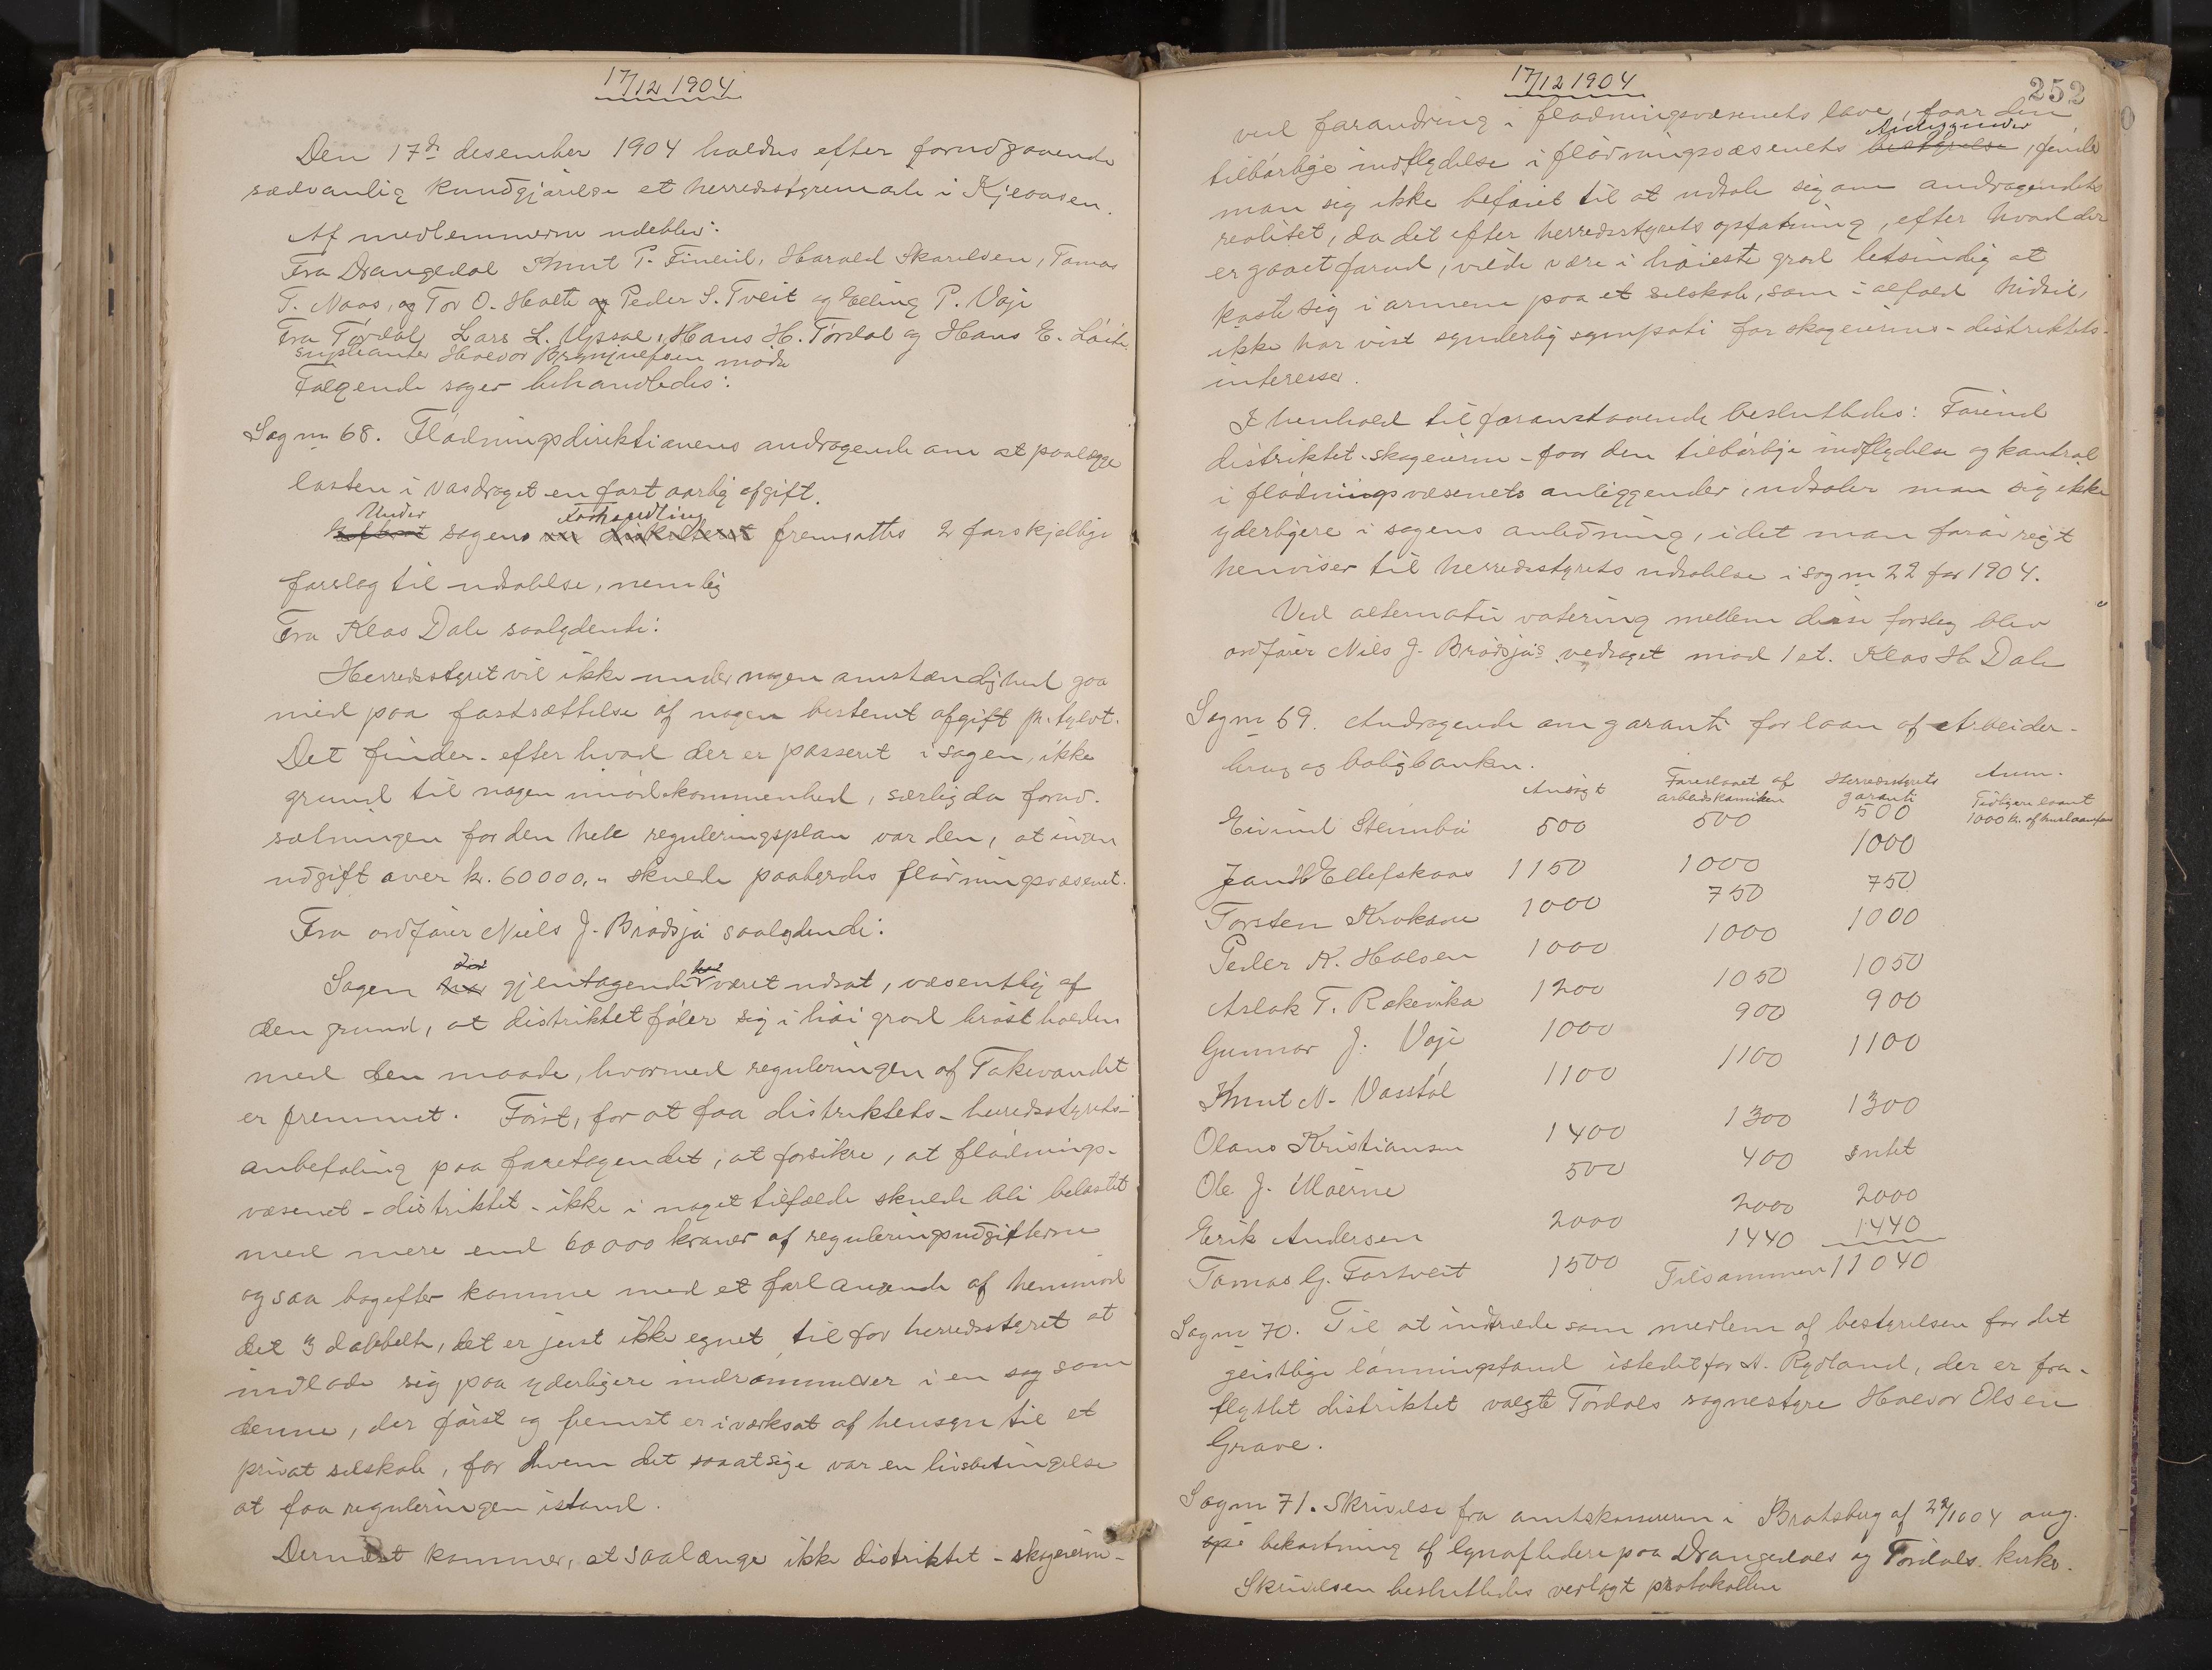 17/12 1904
Den 17de desember 1904 holdtes efter forudgaaende
sædvanlig kundgjørelse et herredsstyremøde i Kjeaasen.
Af medlemmerne udeblev:
Fra Drangedal Knut P. Harald Skarelsen, Tomas
T. Naas, og Tov O. Holte og Peder S. Tveit og Elling P. Voje
Fra Tørdal, Lars L. Upsal, Hans H. Tørdal og Hans E. Løite.
Supleanter Halvor Brynjulfsen mødte
Følgende sager behandledes:
Sag nr 68. Flødningsdirektionens andragende om at paalægge
lasten i vasdraget en fast aarlig afgift.
Under Forhandling
sagens fremsattes 2 forskjellige
forslag til udtalelse, nemlig
Fra Klas Dale saalydende:
Herredsstyret vil ikke under nogen omstændighed gaa
med paa fastsættelse af nogen bestemt afgift pr. tylvt.
Det finder - efter hvad der er passeret i sagen, ikke
grund til nogen imødekommenhed, særlig da forud-
sætningen for den hele reguleringsplan var den, at ingen
udgift over kr. 60000,- skulde paabyrdes flødningsvæsenet.
Fra ordfører Niels J. Brødsjø saalydende:
Sagen har gjentagende været udsat, væsentlig af
den grund, at distriktet føler sig i høi grad brøstholden
med den maade, hvormed reguleringen af Tokevandet
er fremmet. Først, for at faa distriktets - herredsstyrets -
anbefaling paa foretagendet, at forsikre, at flødnings-
væsenet - distriktet - ikke i noget tilfælde skulde bli belastet
med mere end 60000 kroner af reguleringsudgifterne
og saa bagefter komme med et forlangende af henimod
det 3 dobbelte, det er just ikke egnet til for herredsstyret at
indlade sig paa yderligere indrømmelser i en sag som
denne, der først og fremst er iværksat af hensyn til et
privat selskab, for hvem det saaatsige var en livsbetingelse
at faa reguleringen istand.
Dernæst kommer, at saalænge ikke distriktet - skogeierne -
17/12 1904
252
ved forandring i flødningsvæsenets love, faar den
tilbørlige indflydelse i flødningsvæsenets bestyrelse, finder
man sig ikke beføiet til at udtale sig om andragendets
realitet, da det efter herredsstyrets opfatning, efter hvad der
er gaaet forud, vilde være i høieste grad letsindig at
kaste sig i armene paa et selskab, som i alfald hidtil,
ikke har vist synderlig sympati for skogeiernes - distriktets -
interesser.
I henhold til foranstaaende besluttedes: Førend
distriktet - skogeierne - faar den tilbørlige indflydelse og kontrol
i flødningsvæsenets anliggender, udtaler man sig ikke
yderligere i sagens anledning, idet man forøvrigt
henviser til herredsstyrets udtalelse i sag nr 22 for 1904.
Ved alternativ votering mellem disse forslag blev
ordfører Niels J. Brødsjø's vedtaget mod 1 st. Klas H. Dale
Sag nr 69. Andragende om garanti for laan af Arbeider-
brug og boligbanken.
Ansøgt Foreslaaet af arbeidskomiteen Herredsstyrets garanti Anm.
Eivind Stenmbø 500 500 500 Tidligere laant 1000 kr. af
Jan H Ellefskaas 1150 1000 1000
Torsten Krokane 1000 750 750
Peder K. Halsen 1000 1000 1000
Aslak T. Røkevika 1200 1050 1050
Gunnar J. Voje 1000 900 900
Knut N. Vasstøl 1100 1100 1100
Olans Kristiansen 1400 1300 1300
Ole J. Moerne 500 400 Intet
Erik Andersen 2000 2000 2000
Tomas G. Tortveit 1500 1440 1440
Tilsammen 11040
Sag nr 70. Til at indtræde som medlem af bestyrelsen for det
geistlige lønningsfond istedetfor A. Rydland, der er fra-
flyttet distriktet valgte Tørdals sognestyre Halvor Olsen
Grave.
Sag nr 71. Skrivelse fra amtskommunen i Bratsberg af 22/10 04 ang.
bekostning af lynafledere paa Drangedals og Tørdals kirke.
Skrivelsen besluttedes vedlagt protokollen